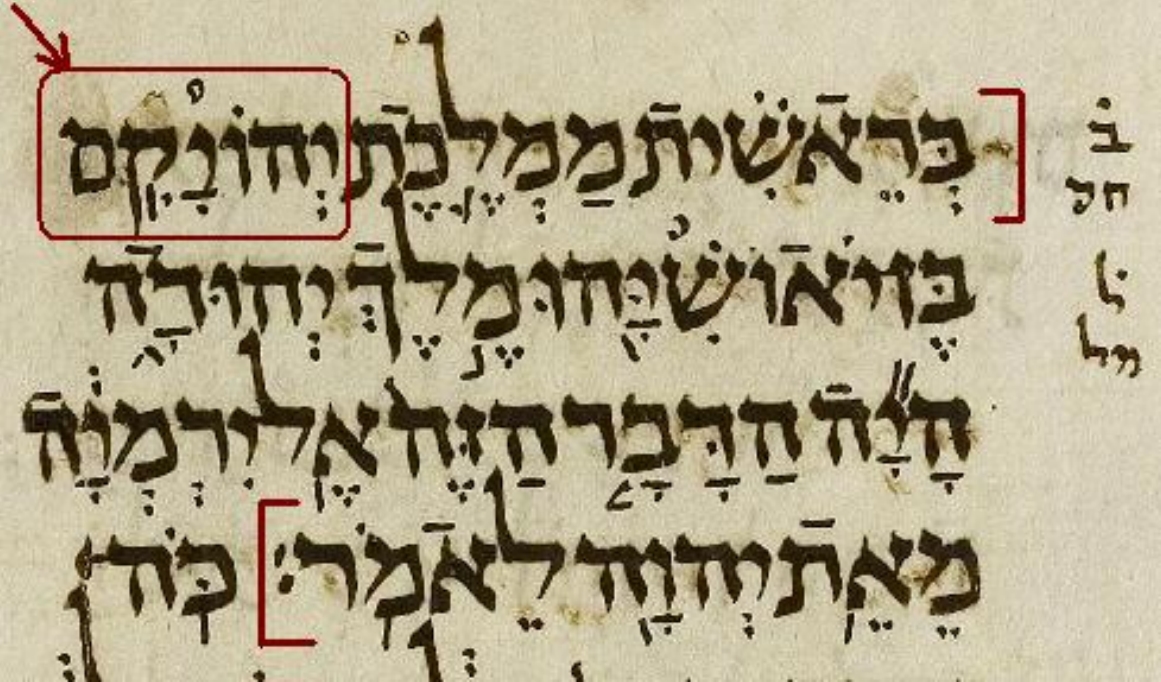 בְּרֵאשִׁית מַמְלֶכֶת יְהוֹיָקִם
בֶּן יֹאושִׁיָּהוּ מֶלֶךְ יְהוּדָה
הָיָה הַדָּבָר הַזֶּה אֶל יִרְמְיָה
מֵאֵת יְהוָה לֵאמֹר׃ כֹּה
בׄ
חס
לׄ
מל